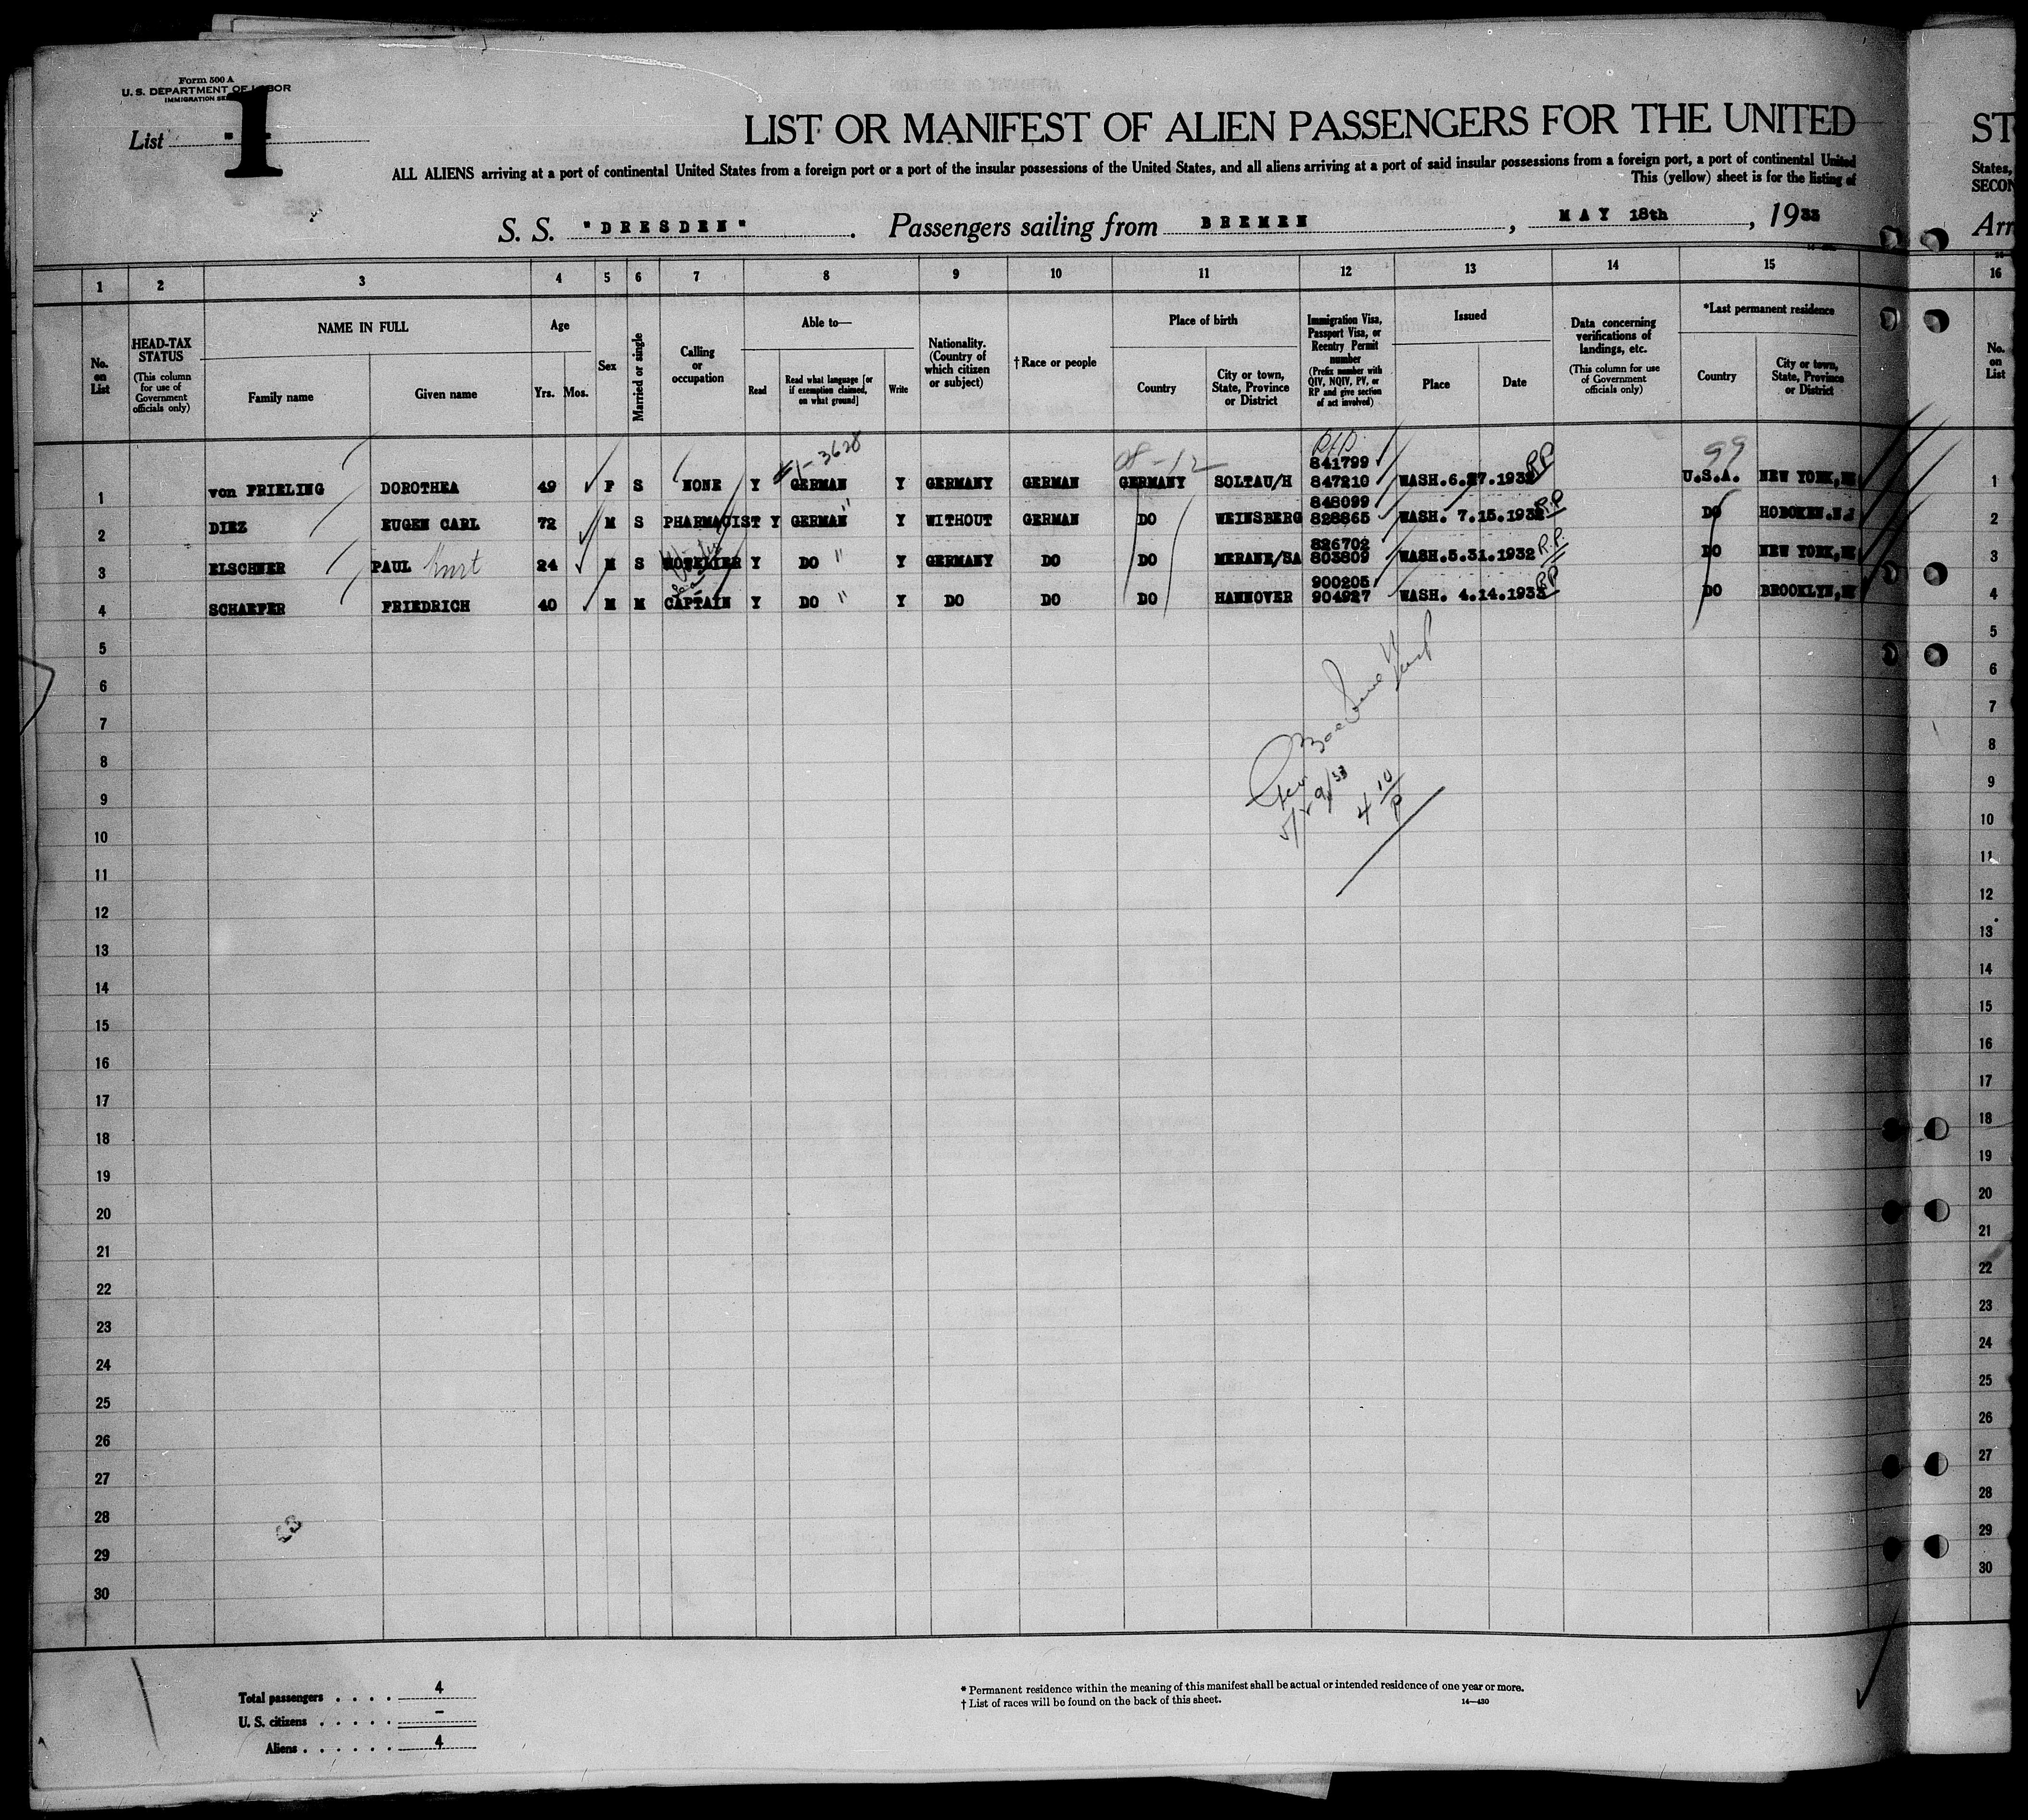 Form 500 A
U. S. DEPARTMENT OF LABOR
IMMIGRATION
List 1
LIST OR MANIFEST OF ALIEN PASSENGERS FOR THE UNITED
ALL ALIENS arriving at a port of continental United States from a foreign port or a port of the insular possessions of the United States, and all aliens arriving at a port of said insular possessions from a foreign port, a port of continental United
This (yellow) sheet is for the listing of
S. S. "DRESDEN". Passengers sailing from BREMEN, MAY 18th, 1933
1 2 3 4 5 6 7 8 9 10 11 12 13 14 15
No. on List
HEAD-TAX STATUS (This column for use of Government officials only)
NAME IN FULL
Family name
Given name
Age
Yrs. Mos.
Sex
Married or single
Calling or occupation
Able to—
Read
Read what language [or if exemption claimed, on what ground]
Write
Nationality. (Country of which citizen or subject)
†Race or people
Place of birth
Country
City or town, State, Province or District
Immigration Visa, Passport Visa, or Reentry Permit number (Prefix number with QIV, NQIV, PV, or RP and give section of act involved)
Issued
Place
Date
Data concerning verifications of landings, etc. (This column for use of Government officials only)
*Last permanent residence
Country
City or town, State, Province or District
1-3628 08-12 99
841799
1 von FRIELING DOROTHEA 49 F S NONE Y GERMAN Y GERMANY GERMAN GERMANY SOLTAU/H 847210 WASH. 6.27.1932 RP U.S.A. NEW YORK, NY
848099
2 DIEZ EUGEN CARL 72 M S PHARMACIST Y GERMAN " Y WITHOUT GERMAN DO WEINSBERG 828865 WASH. 7.15.1932 R.P. DO HOBOKEN.N.J
826702
3 ELSCHNER PAUL Kurt 24 M S HOTELIER Y DO " Y GERMANY DO DO MERANE/SA 803809 WASH. 5.31.1932 R.P. DO NEW YORK, NY
900205
4 SCHAEFER FRIEDRICH 40 M M CAPTAIN Y DO " Y DO DO DO HANNOVER 904927 WASH. 4.14.1933 RP DO BROOKLYN, NY
5
6
7
8
9
10
11
12
13
14
15
16
17
18
19
20
21
22
23
24
25
26
27
28
29
30
5/29/33
4 10 P
Total passengers . . . . 4
U. S. citizens . . . . . -
Aliens . . . . . . 4
* Permanent residence within the meaning of this manifest shall be actual or intended residence of one year or more.
† List of races will be found on the back of this sheet.
14—430
States,
SECON
Arr
16
No. on List
1
2
3
4
5
6
7
8
9
10
11
12
13
14
15
16
17
18
19
20
21
22
23
24
25
26
27
28
29
30